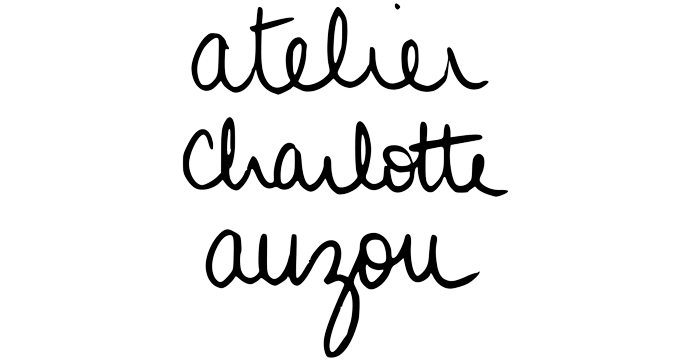 atelier
charlotte
auzou